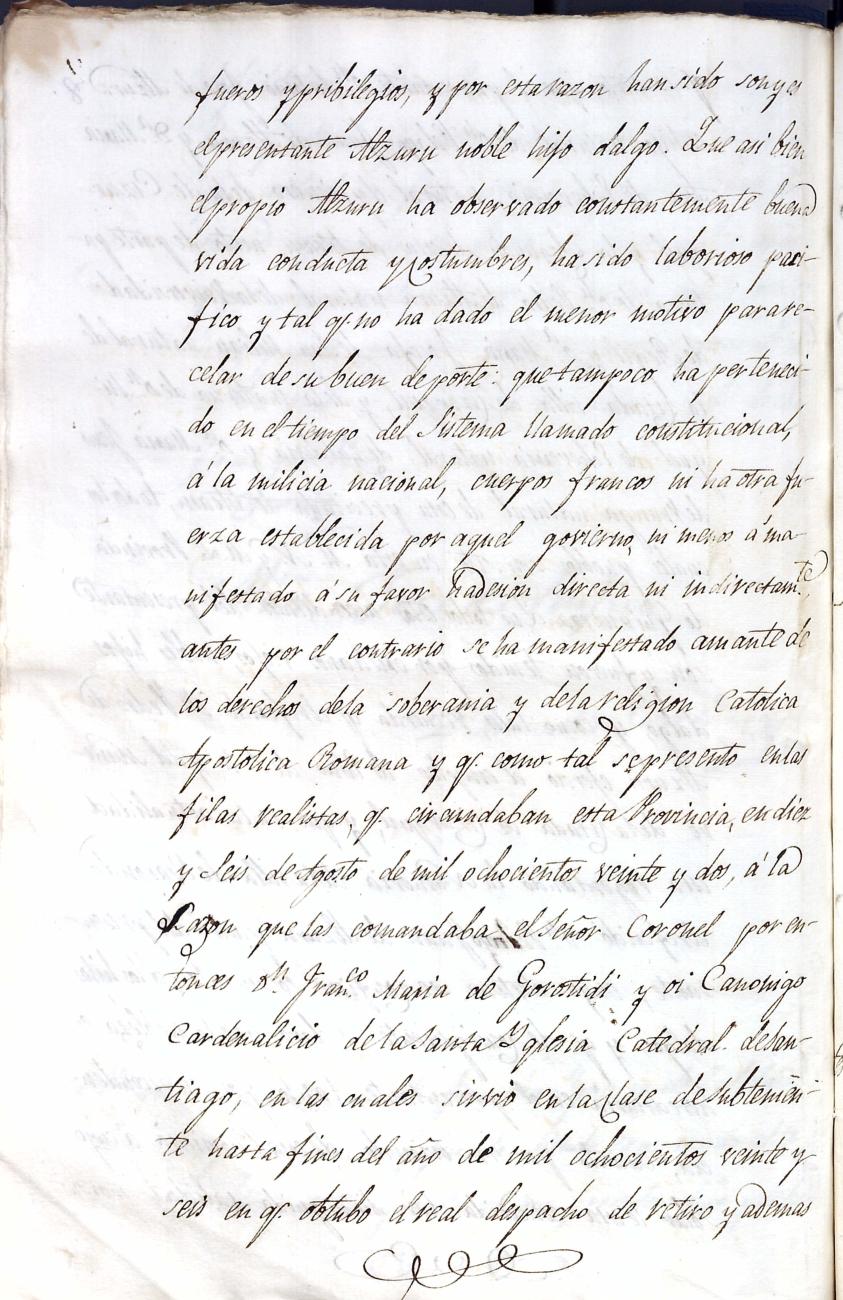 fueros y pribilegios, y por esta razon han sido son y es
el presentante Alzuru noble hijo dalgo. Que asi bien
el propio Alzuru ha observado constantemente buena
vida conducta y costumbres, ha sido laborioso paci-
fico y tal q.e no ha dado el menor motivo para re-
celar de su buen deporte: que tampoco ha perteneci-
do en el tiempo del Sistema llamado constitucional,
á la milicia nacional, cuerpos francos ni ha otra fu-
erza establecida por aquel govierno, ni menos á ma-
nifestado á su favor hadesion directa ni indirectam.te,
antes por el contrario se ha manifestado amante de
los derechos de la soberania y de la religion Catolica
Apostolica Romana y q.e como tal se presento en las
filas realistas, q.e circundaban esta Provincia, en diez
y Seis de Agosto de mil ochocientos veinte y dos, á la
Sazon que las comandaba el Señor Coronel por en-
tonces D.n Fran.co Maria de Gorostidi y oi Canonigo
Cardenalicio de la Santa Yglesia Catedral de San-
tiago, en las cuales sirvio en la Clase de Subtenien-
te hasta fines del año de mil ochocientos veinte y
seis en q.e obtubo el real despacho de retiro y ademas